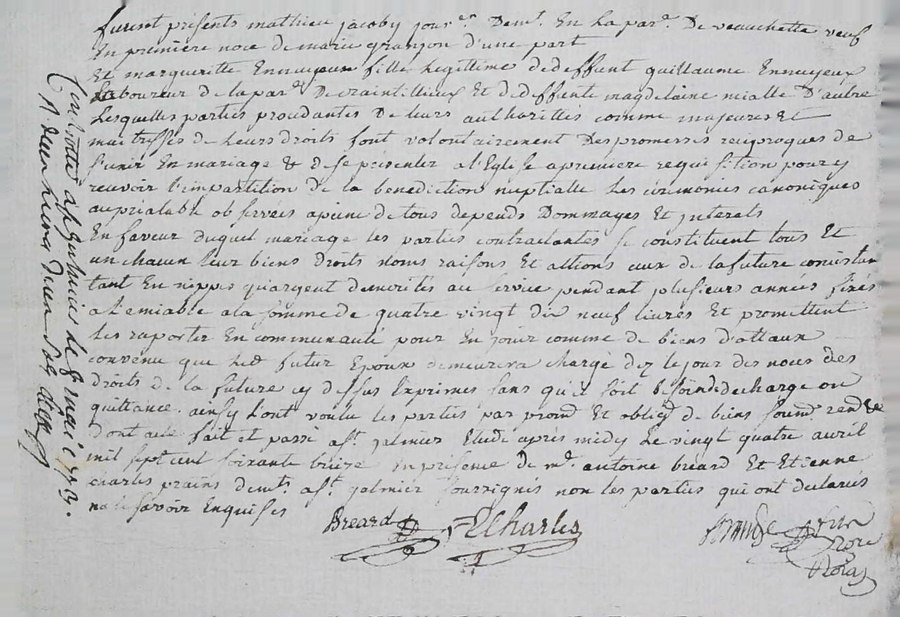 furent présents mathieu jacoby jour.er Dem.t En la par.e De veauchette veuf
En première noce de marie granjon d'une part
Et margueritte Ennuyeux fille legittime de deffunt guillaume Ennuyeux
Laboureur de la par.e De craintillieux Et de deffunte magdelaine mialle D'autre
Lesquelles parties procedantes De leurs authorittes comme majeures Et
maitresses de Leurs droits font volontairement Des promesses reciproques de
s'unir En mariage & de se presenter a l'Eglise a premiere requisition pour y
recevoir l'impartition de la benediction nuptialle Les ceremonies canoniques
au prealable observées a peine de tous depends Dommages Et interets
En faveur duquel mariage les parties contractantes se constituent tous Et
un chacun leur biens droits noms raisons Et actions ceux de la future consistan
tant En nippes qu'argent demerités au service pendant plusieurs années fixés
a L'amiable a la somme de quatre vingt dix neuf livres Et promettent
Les raporter En communauté pour En jouir comme de biens dotaux
convenu que led.t futur Epoux demeurera chargé dez le jour des noces des
droits de la future cy dessus Exprimés sans qu'il soit besoin de decharge ou
quittance. ainsy L'ont voulu les parties par promd Et obligd de biens soumd rend &c
Dont acte fait et passé a S.t galmier Etude après midy Le vingt quatre avril
mil sept cent soixante treize En presence de m.e antoine Bréard Et Etienne
charles prains dem.ts a S.t galmier soussignés non les parties qui ont declarés
ne le savoir Enquises
Breard ECharles
Controllé a S.t galmier le 8 mai 1773.